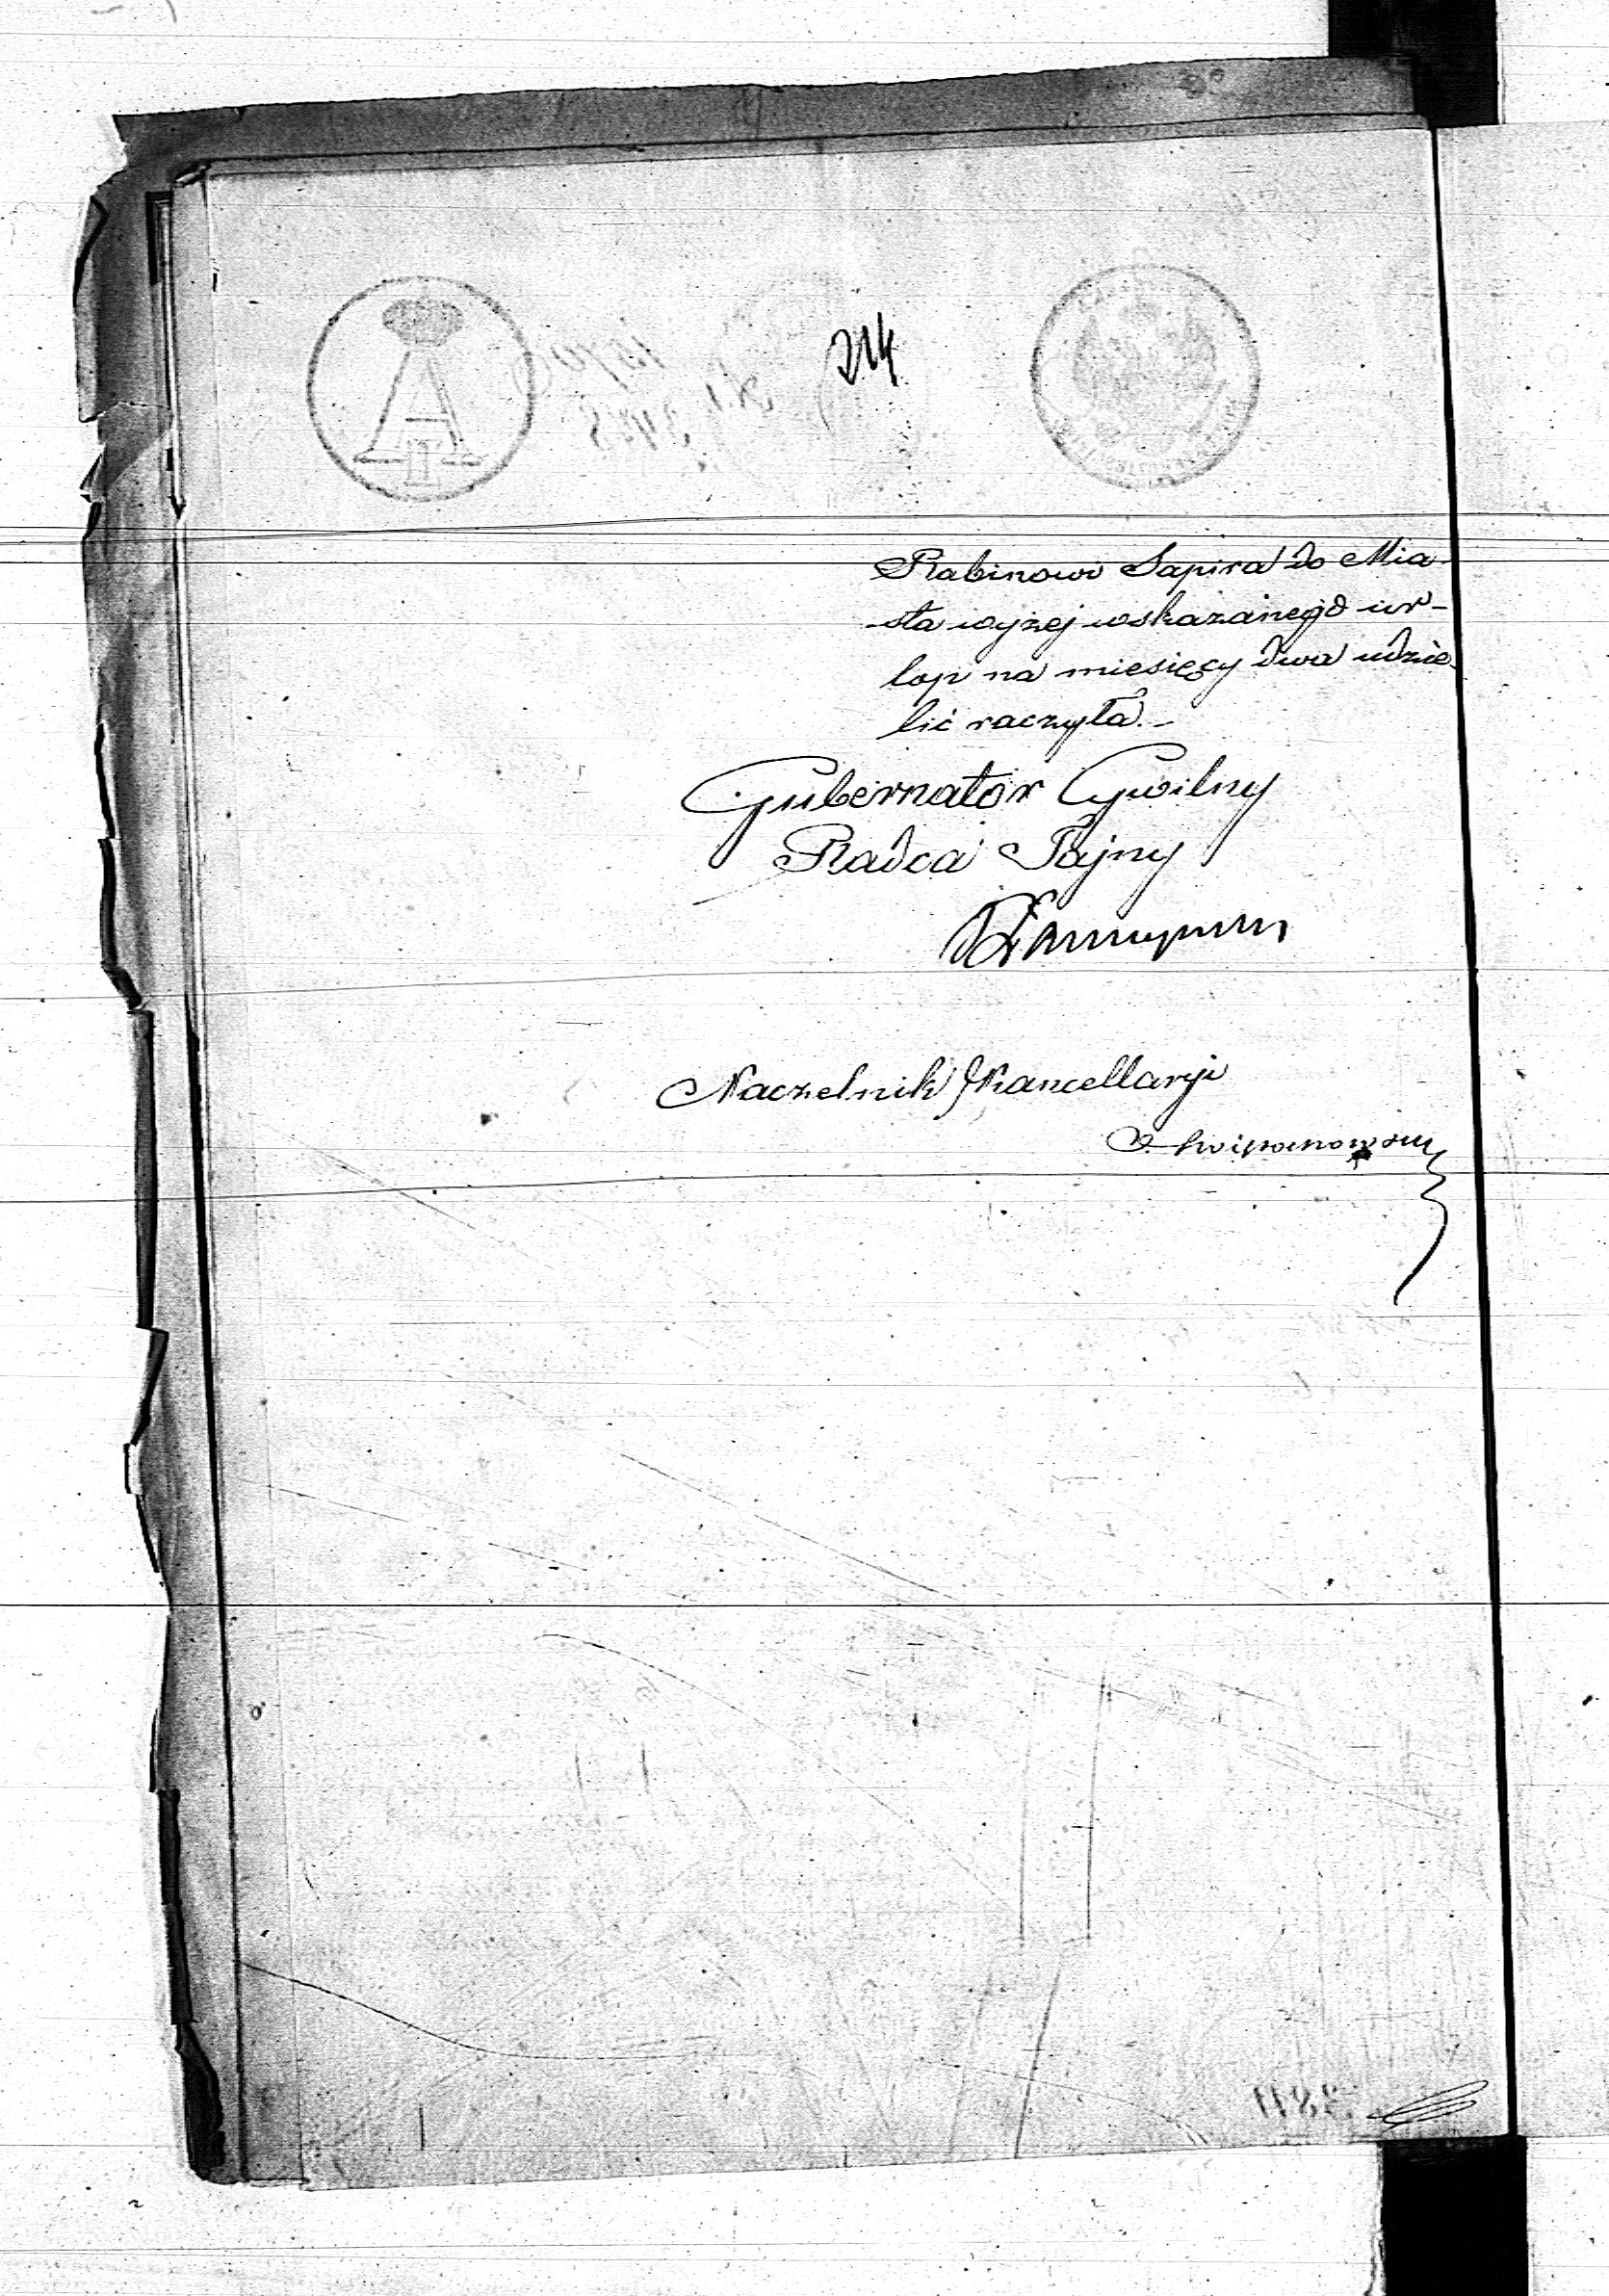 214
Rabinowi Sapira do Mia-
sta wyżej wskazanego ur-
lop na miesięcy dwa udzie-
lić raczyła.-
Gubernator Cywilny
Radca Tajny
Naczelnik Kancellaryi